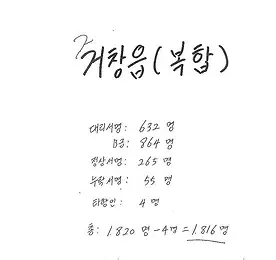 거창읍(복합)
대리서명: 632 명
B급: 864 명
정상서명: 265 명
누락서명: 55 명
타합인: 4 명
총: 1.820 명 - 4명 = 1.816명